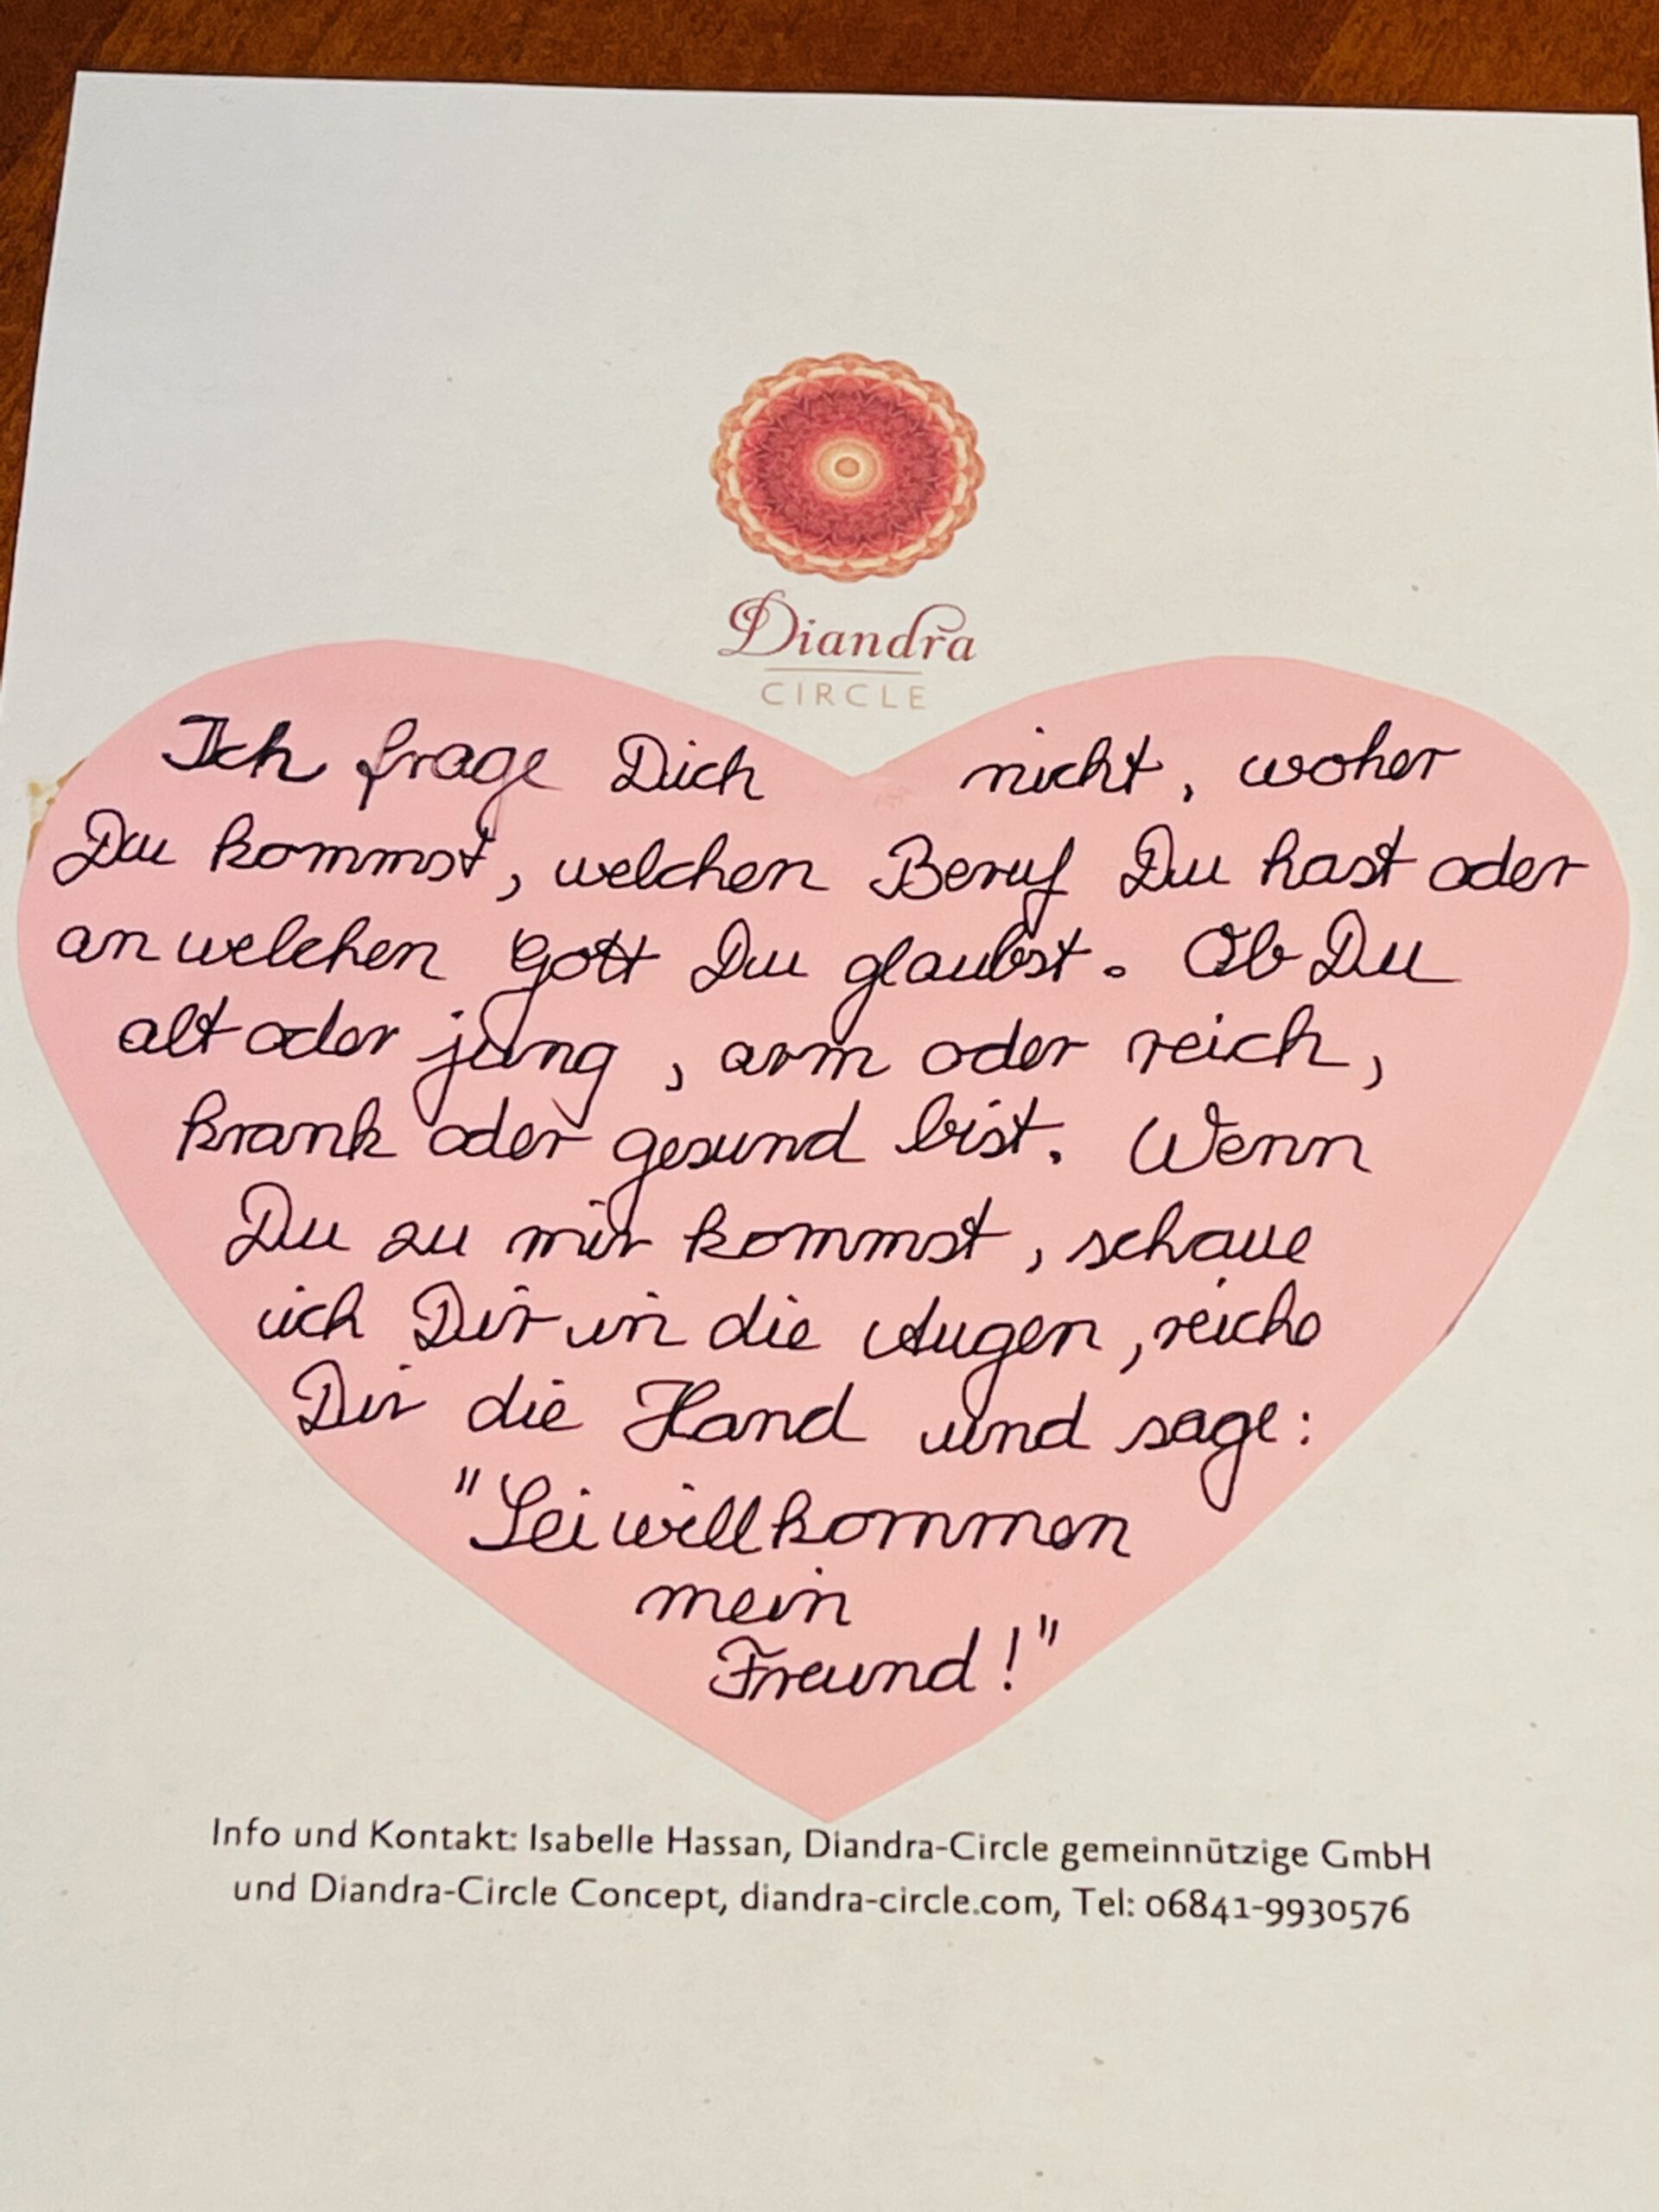 Diandra
CIRCLE
Ich frage Dich nicht, woher
Du kommst, welchen Beruf Du hast oder
an welchen Gott Du glaubst. Ob Du
alt oder jung, arm oder reich,
krank oder gesund bist. Wenn
Du zu mir kommst, schaue
ich Dir in die Augen, reiche
Dir die Hand und sage:
"Sei willkommen
mein
Freund!"
Info und Kontakt: Isabelle Hassan, Diandra-Circle gemeinnützige GmbH
und Diandra-Circle Concept, diandra-circle.com, Tel: 06841-9930576